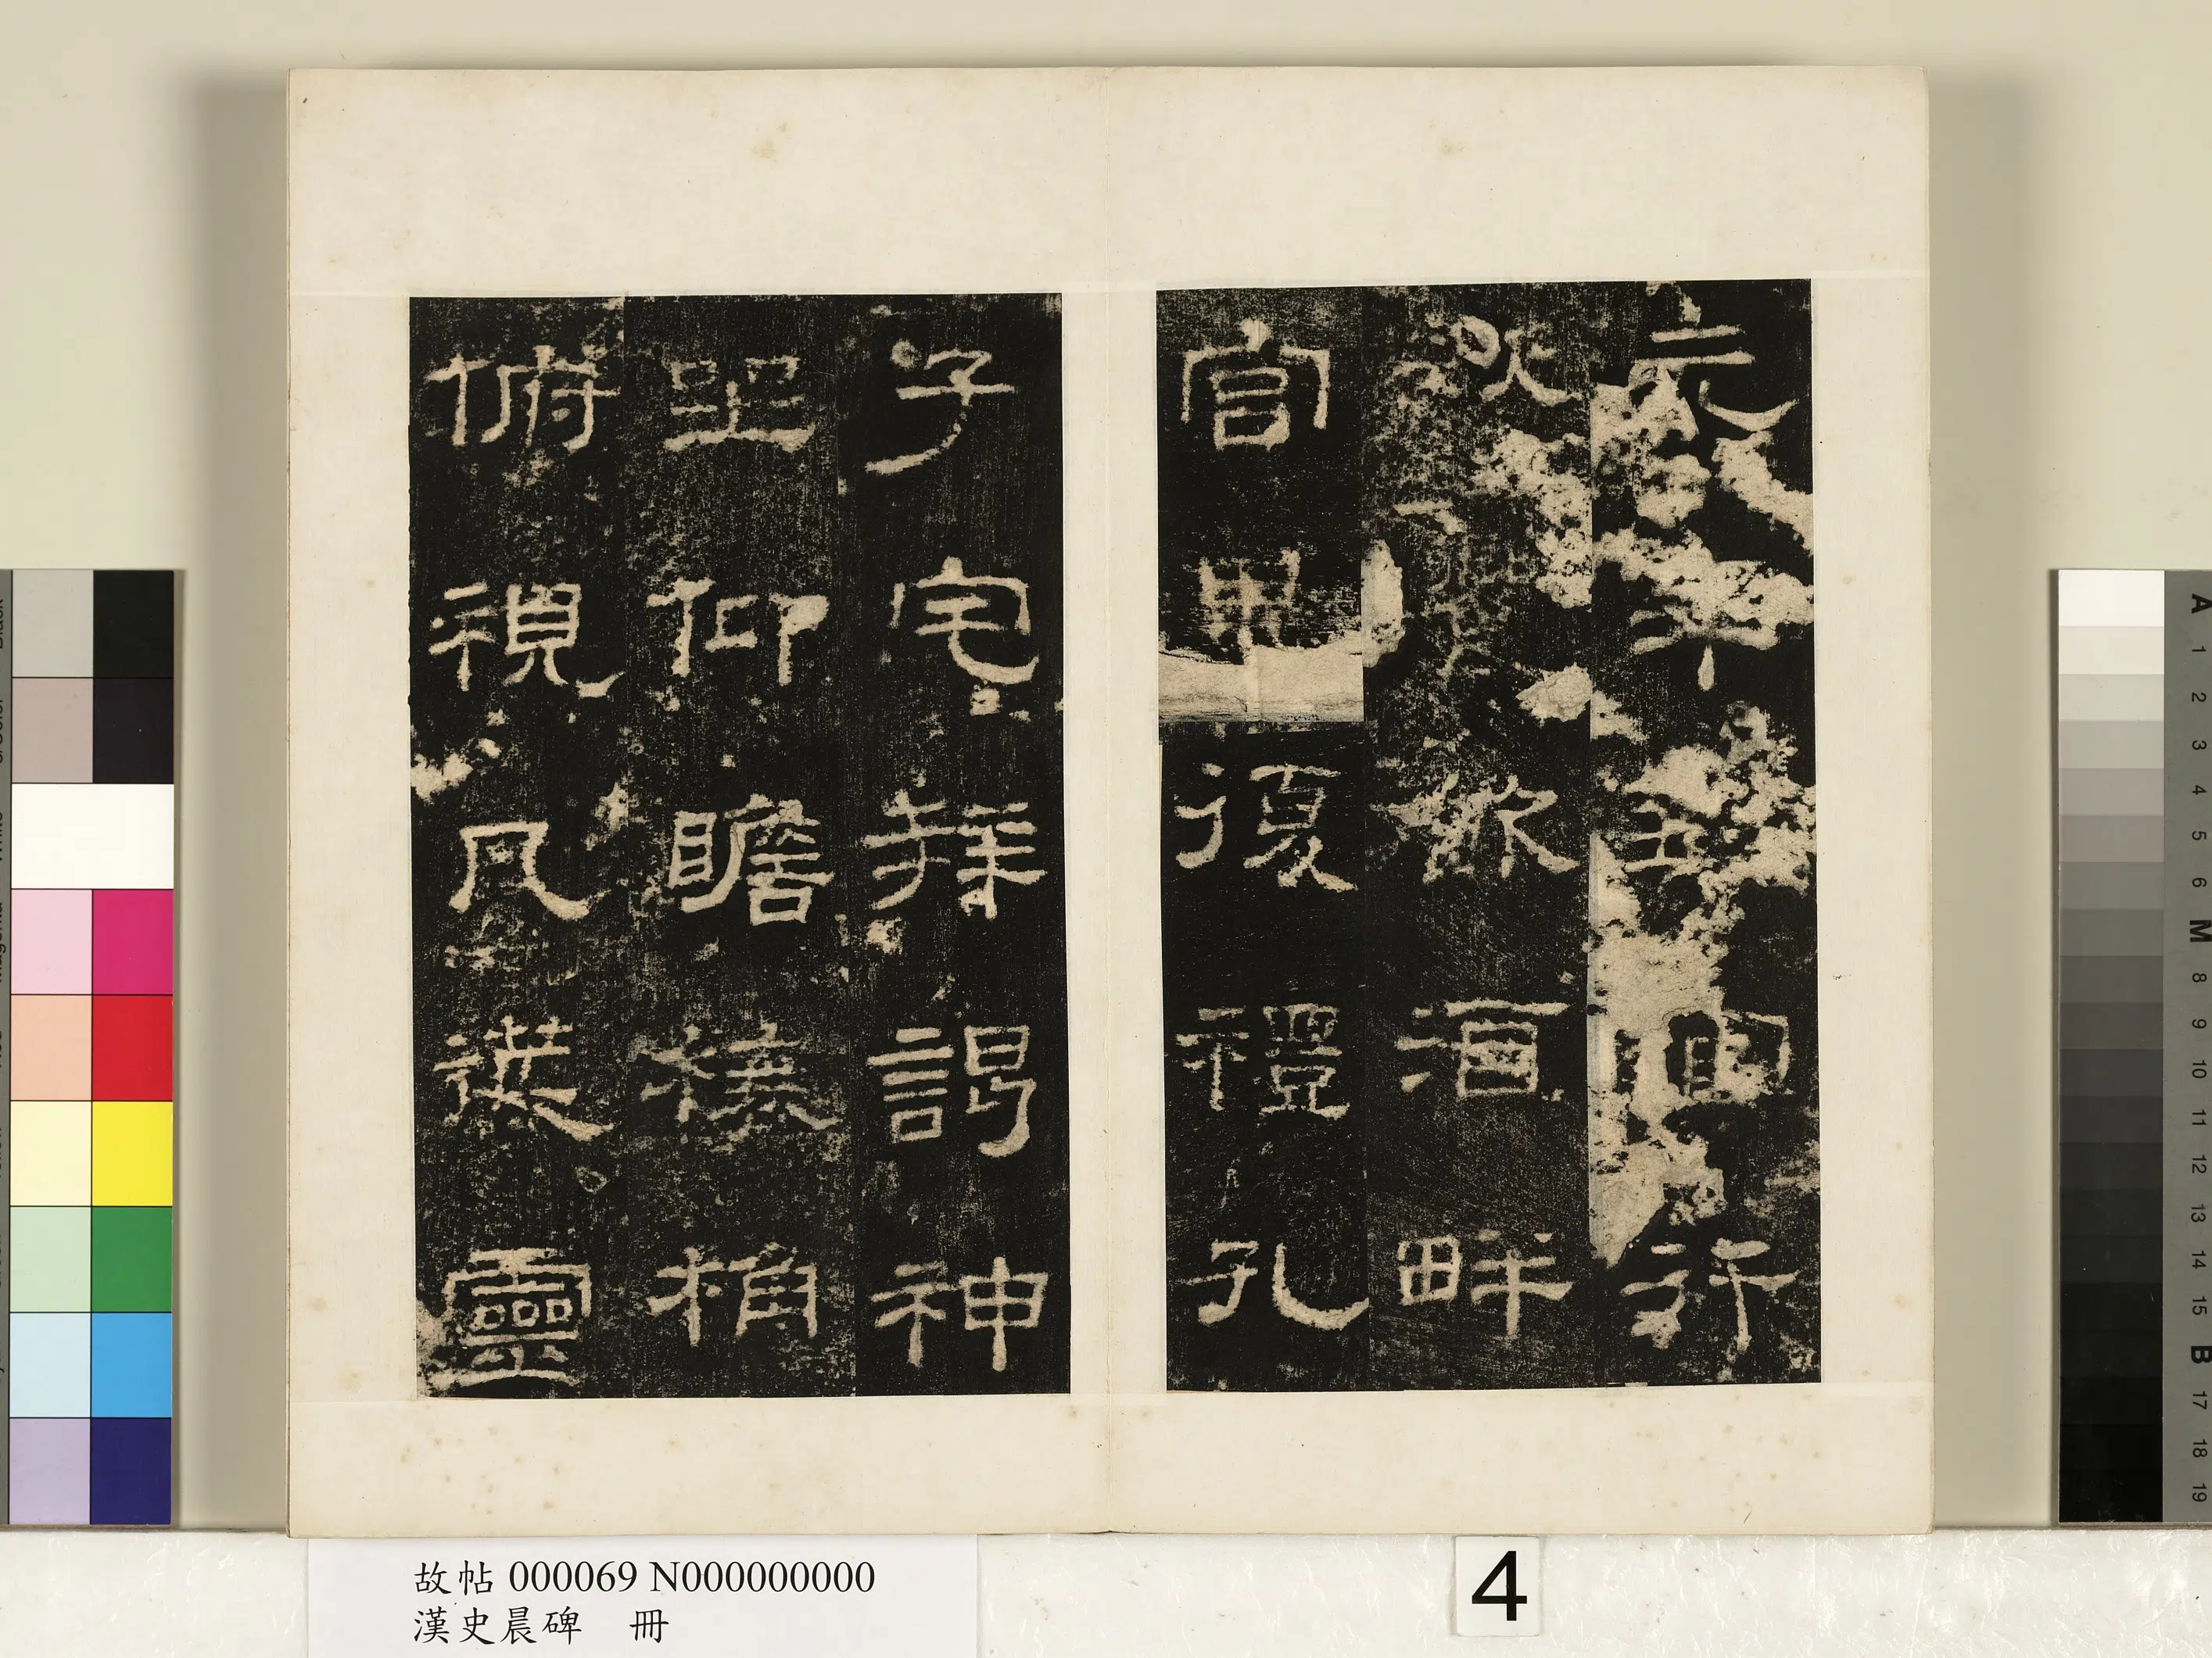 元年官行
秋飲酒畔
官畢復禮孔
子宅拜謁神
坐仰瞻榱桷
俯視几筵靈
故帖 000069 N000000000
漢史晨碑 冊
4
A 1 2 3 4 5 6 M 8 9 10 11 12 13 14 15 B 17 18 19